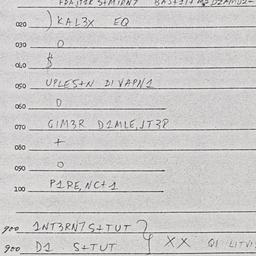 020 ) KAL3X EQ
030 O
040 $
050 UPLES+N DIVAPN1
060 O
070 GIM3R D1MLE,JT3P
080 +
090 O
100 P1RE,NC+1
900 1NT3RN7 S+TUT
900 D1 S+TUT } XX Q1 LITVI